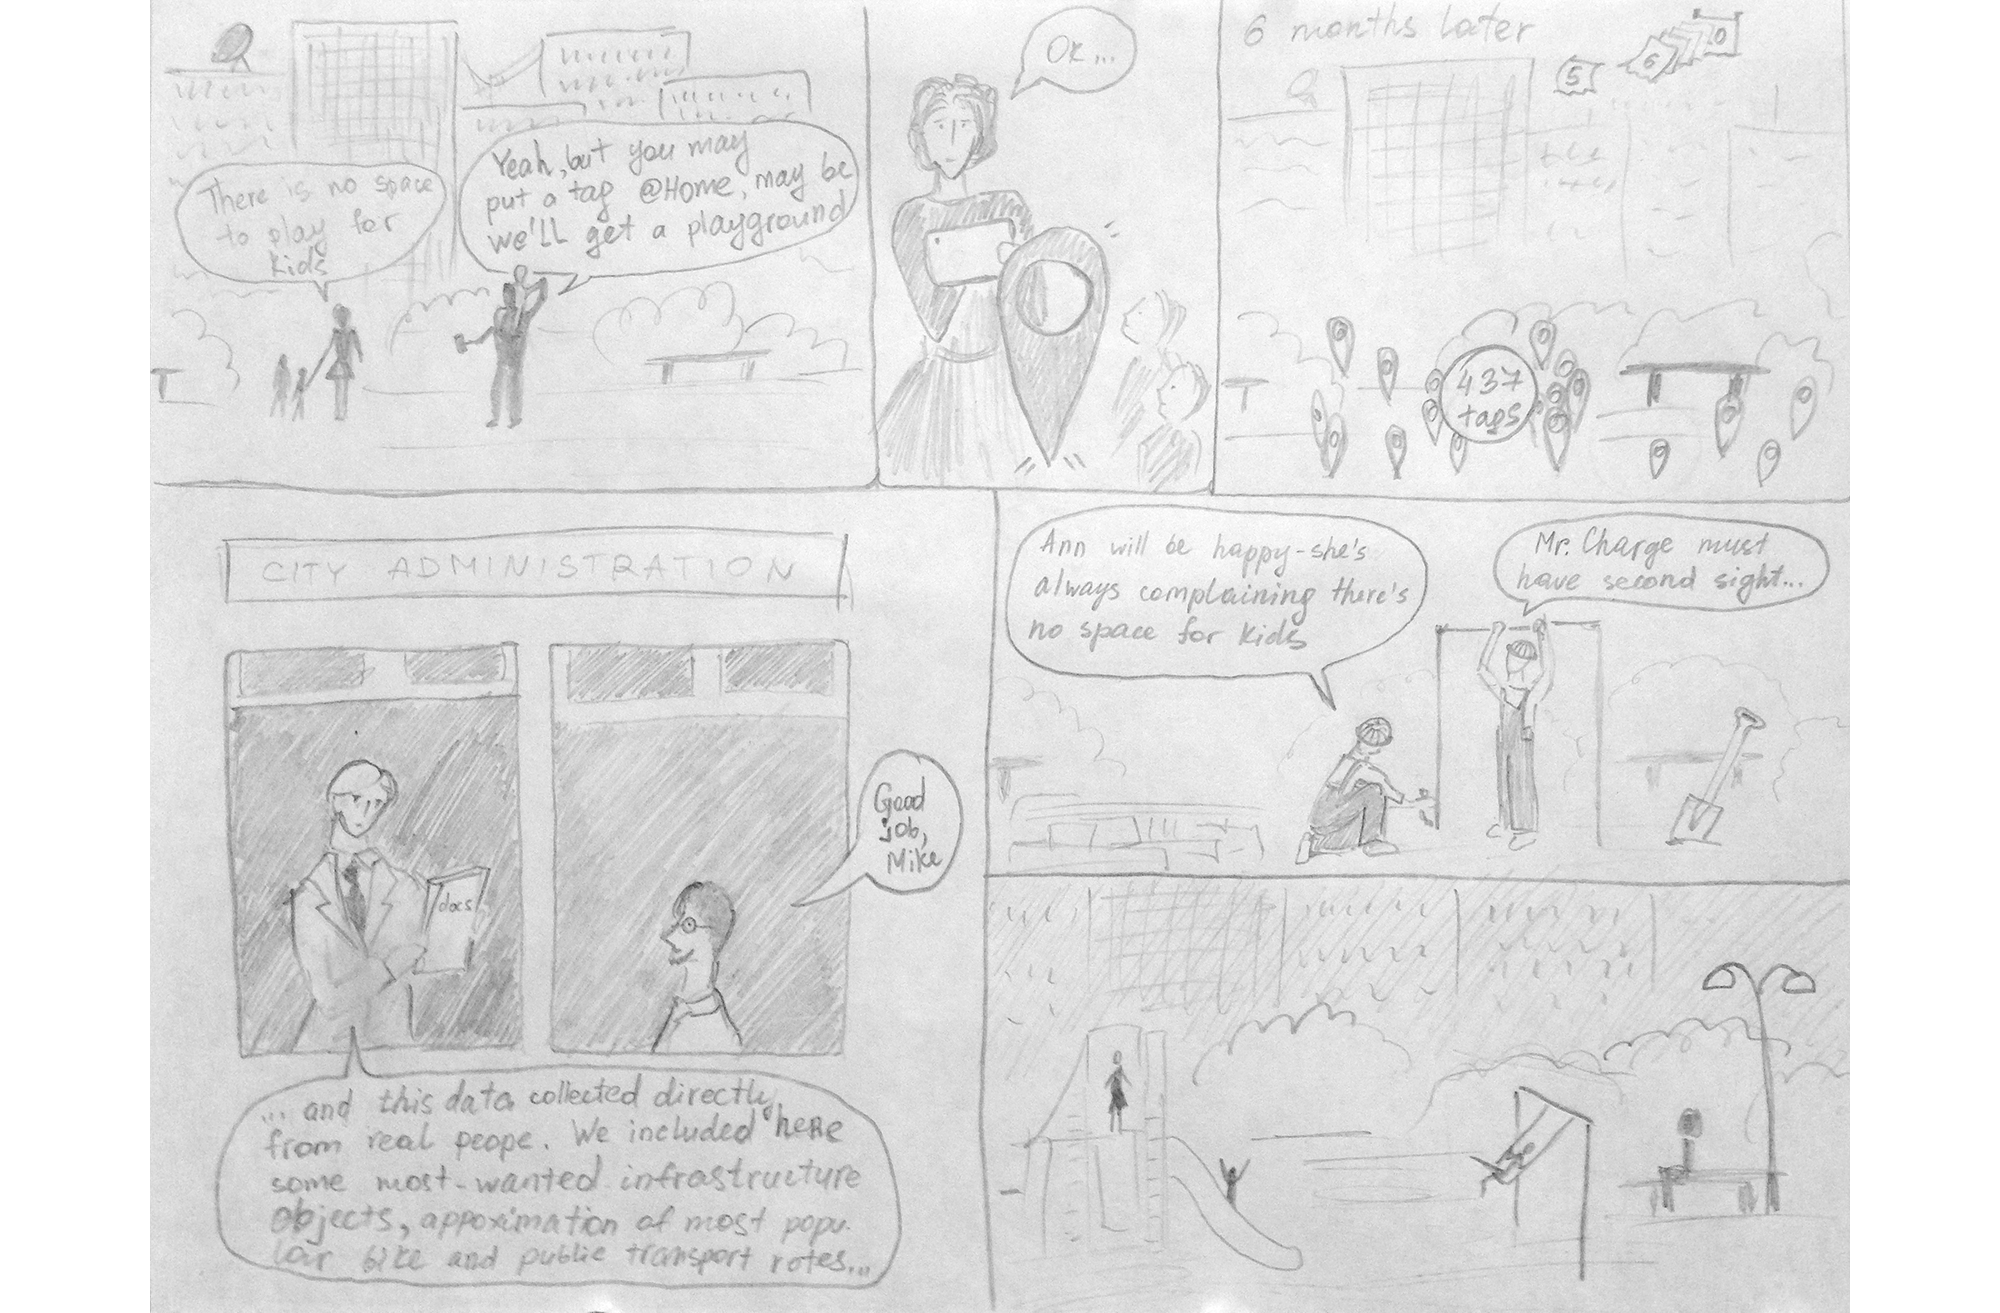 There is no space
to play for
kids
Yeah, but you may
put a tag @Home, may be
we'll get a playground
Ok...
6 months later
5
6
0
437
tags
CITY ADMINISTRATION
docs
Good
job,
Mike
... and this data collected directly
from real peope. We included here
some most-wanted infrastructure
objects, appoximation of most popu-
lar bike and public transport rotes...
Ann will be happy-she's
always complaining there's
no space for kids
Mr. Charge must
have second sight...